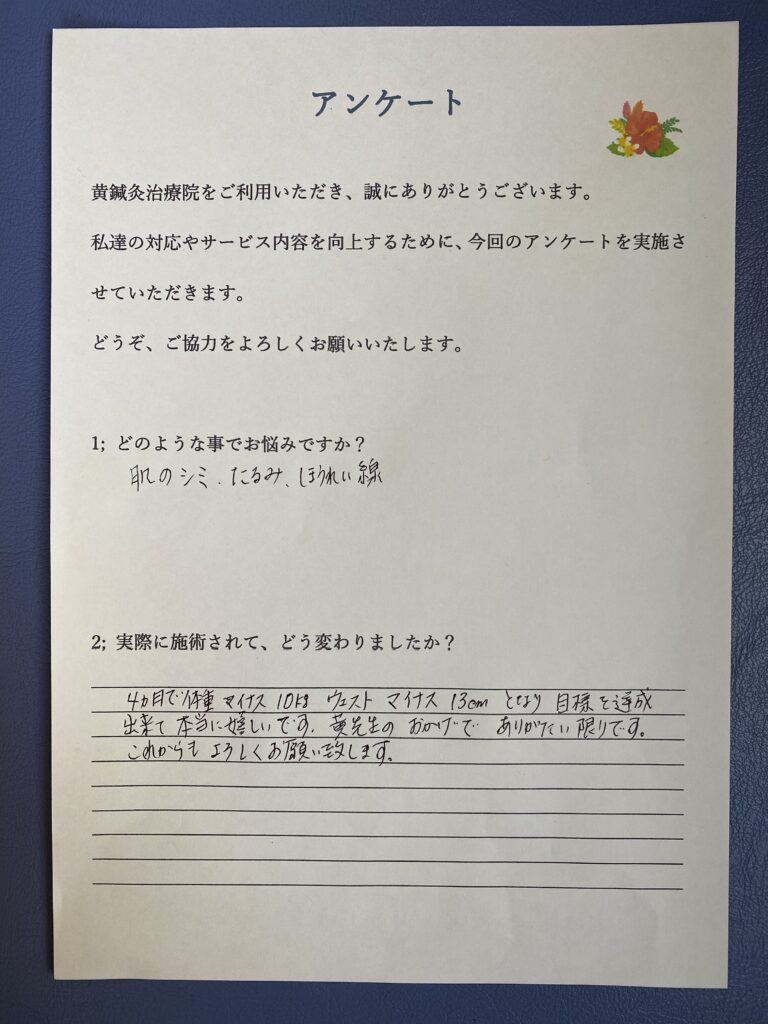 アンケート
黄鍼灸治療院をご利用いただき、誠にありがとうございます。
私達の対応やサービス内容を向上するために、今回のアンケートを実施さ
せていただきます。
どうぞ、ご協力をよろしくお願いいたします。
1; どのような事でお悩みですか？
肌のシミ、たるみ、ほうれい線
2; 実際に施術されて、どう変わりましたか？
4ヵ月で体重 マイナス 10kg ウエスト マイナス 13cm となり 目標を達成
出来て 本当に嬉しいです。黄先生の おかげで ありがたい限りです。
これからも よろしくお願い致します。